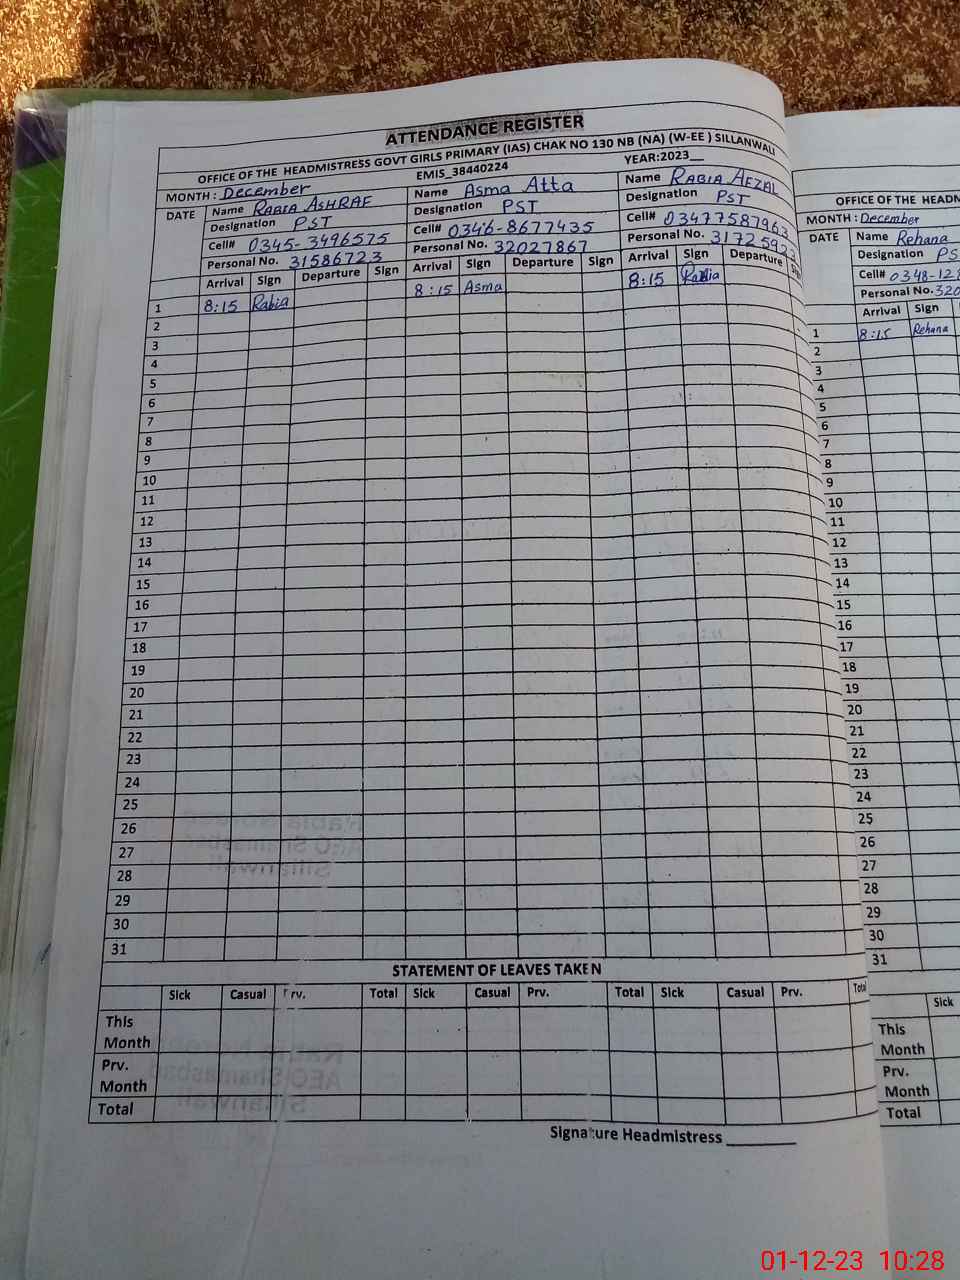 ATTENDANCE REGISTER
OFFICE OF THE HEADMISTRESS GOVT GIRLS PRIMARY (IAS) CHAK NO 130 NB (NA) (W-EE ) SILLANWALI
MONTH : December EMIS_38440224 YEAR:2023__
DATE Name RABIA ASHRAF Name Asma Atta Name RABIA AFZAL
Designation PST Designation PST Designation PST
Cell# 0345-3496575 Cell# 0346-8677435 Cell# 03477587963
Personal No. 31586723 Personal No. 32027867 Personal No. 3172592
Arrival Sign Departure Sign Arrival Sign Departure Sign Arrival Sign Departure
1 8:15 Rabia 8:15 Asma 8:15 Rabia
2
3
4
5
6
7
8
9
10
11
12
13
14
15
16
17
18
19
20
21
22
23
24
25
26
27
28
29
30
31
STATEMENT OF LEAVES TAKEN
Sick Casual Prv. Total Sick Casual Prv. Total Sick Casual Prv. Total
This Month
Prv. Month
Total
Signature Headmistress ________
OFFICE OF THE HEADM
MONTH : December
DATE Name Rehana
Designation PS
Cell# 0348-128
Personal No. 320
Arrival Sign
1 8:15 Rehana
2
3
4
5
6
7
8
9
10
11
12
13
14
15
16
17
18
19
20
21
22
23
24
25
26
27
28
29
30
31
Sick
This Month
Prv. Month
Total
01-12-23 10:28